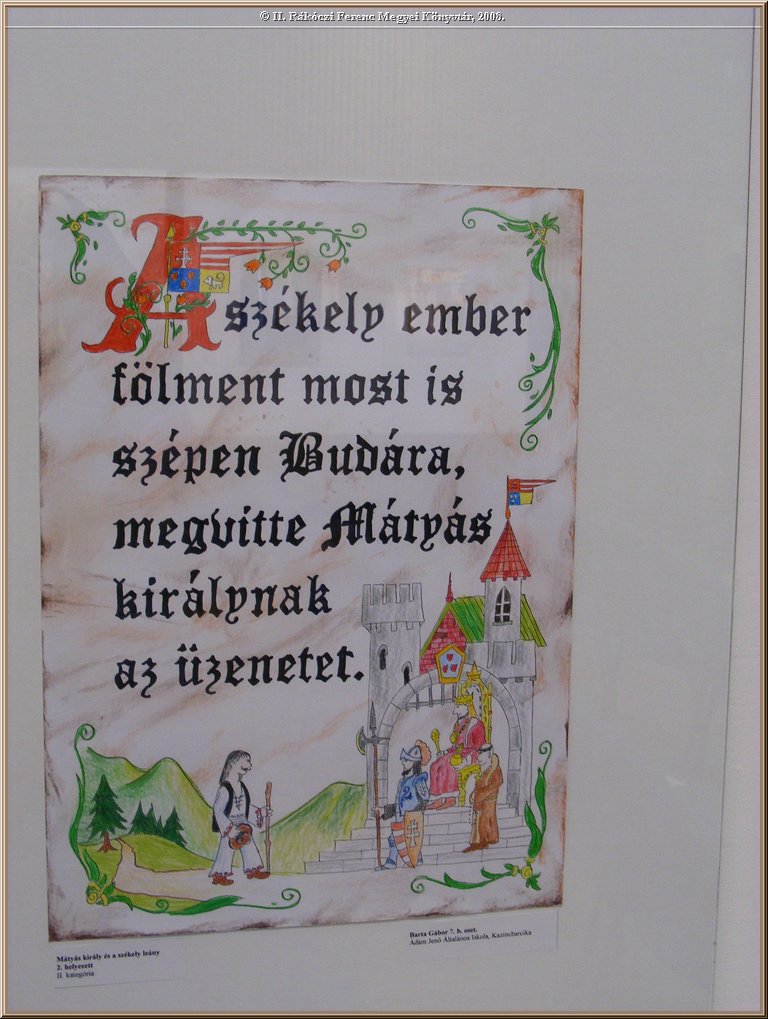 © II. Rákóczi Ferenc Megyei Könyvtár, 2008.
A székely ember
fölment most is
szépen Budára,
megvitte Mátyás
királynak
az üzenetet.
Mátyás király és a székely leány
2. helyezett
II. kategória
Barta Gábor 7. b. oszt.
Ádám Jenő Általános Iskola, Kazincbarcika